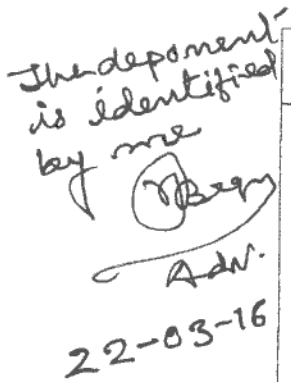 The deponent
is identified
by me
Adv.
22-03-16